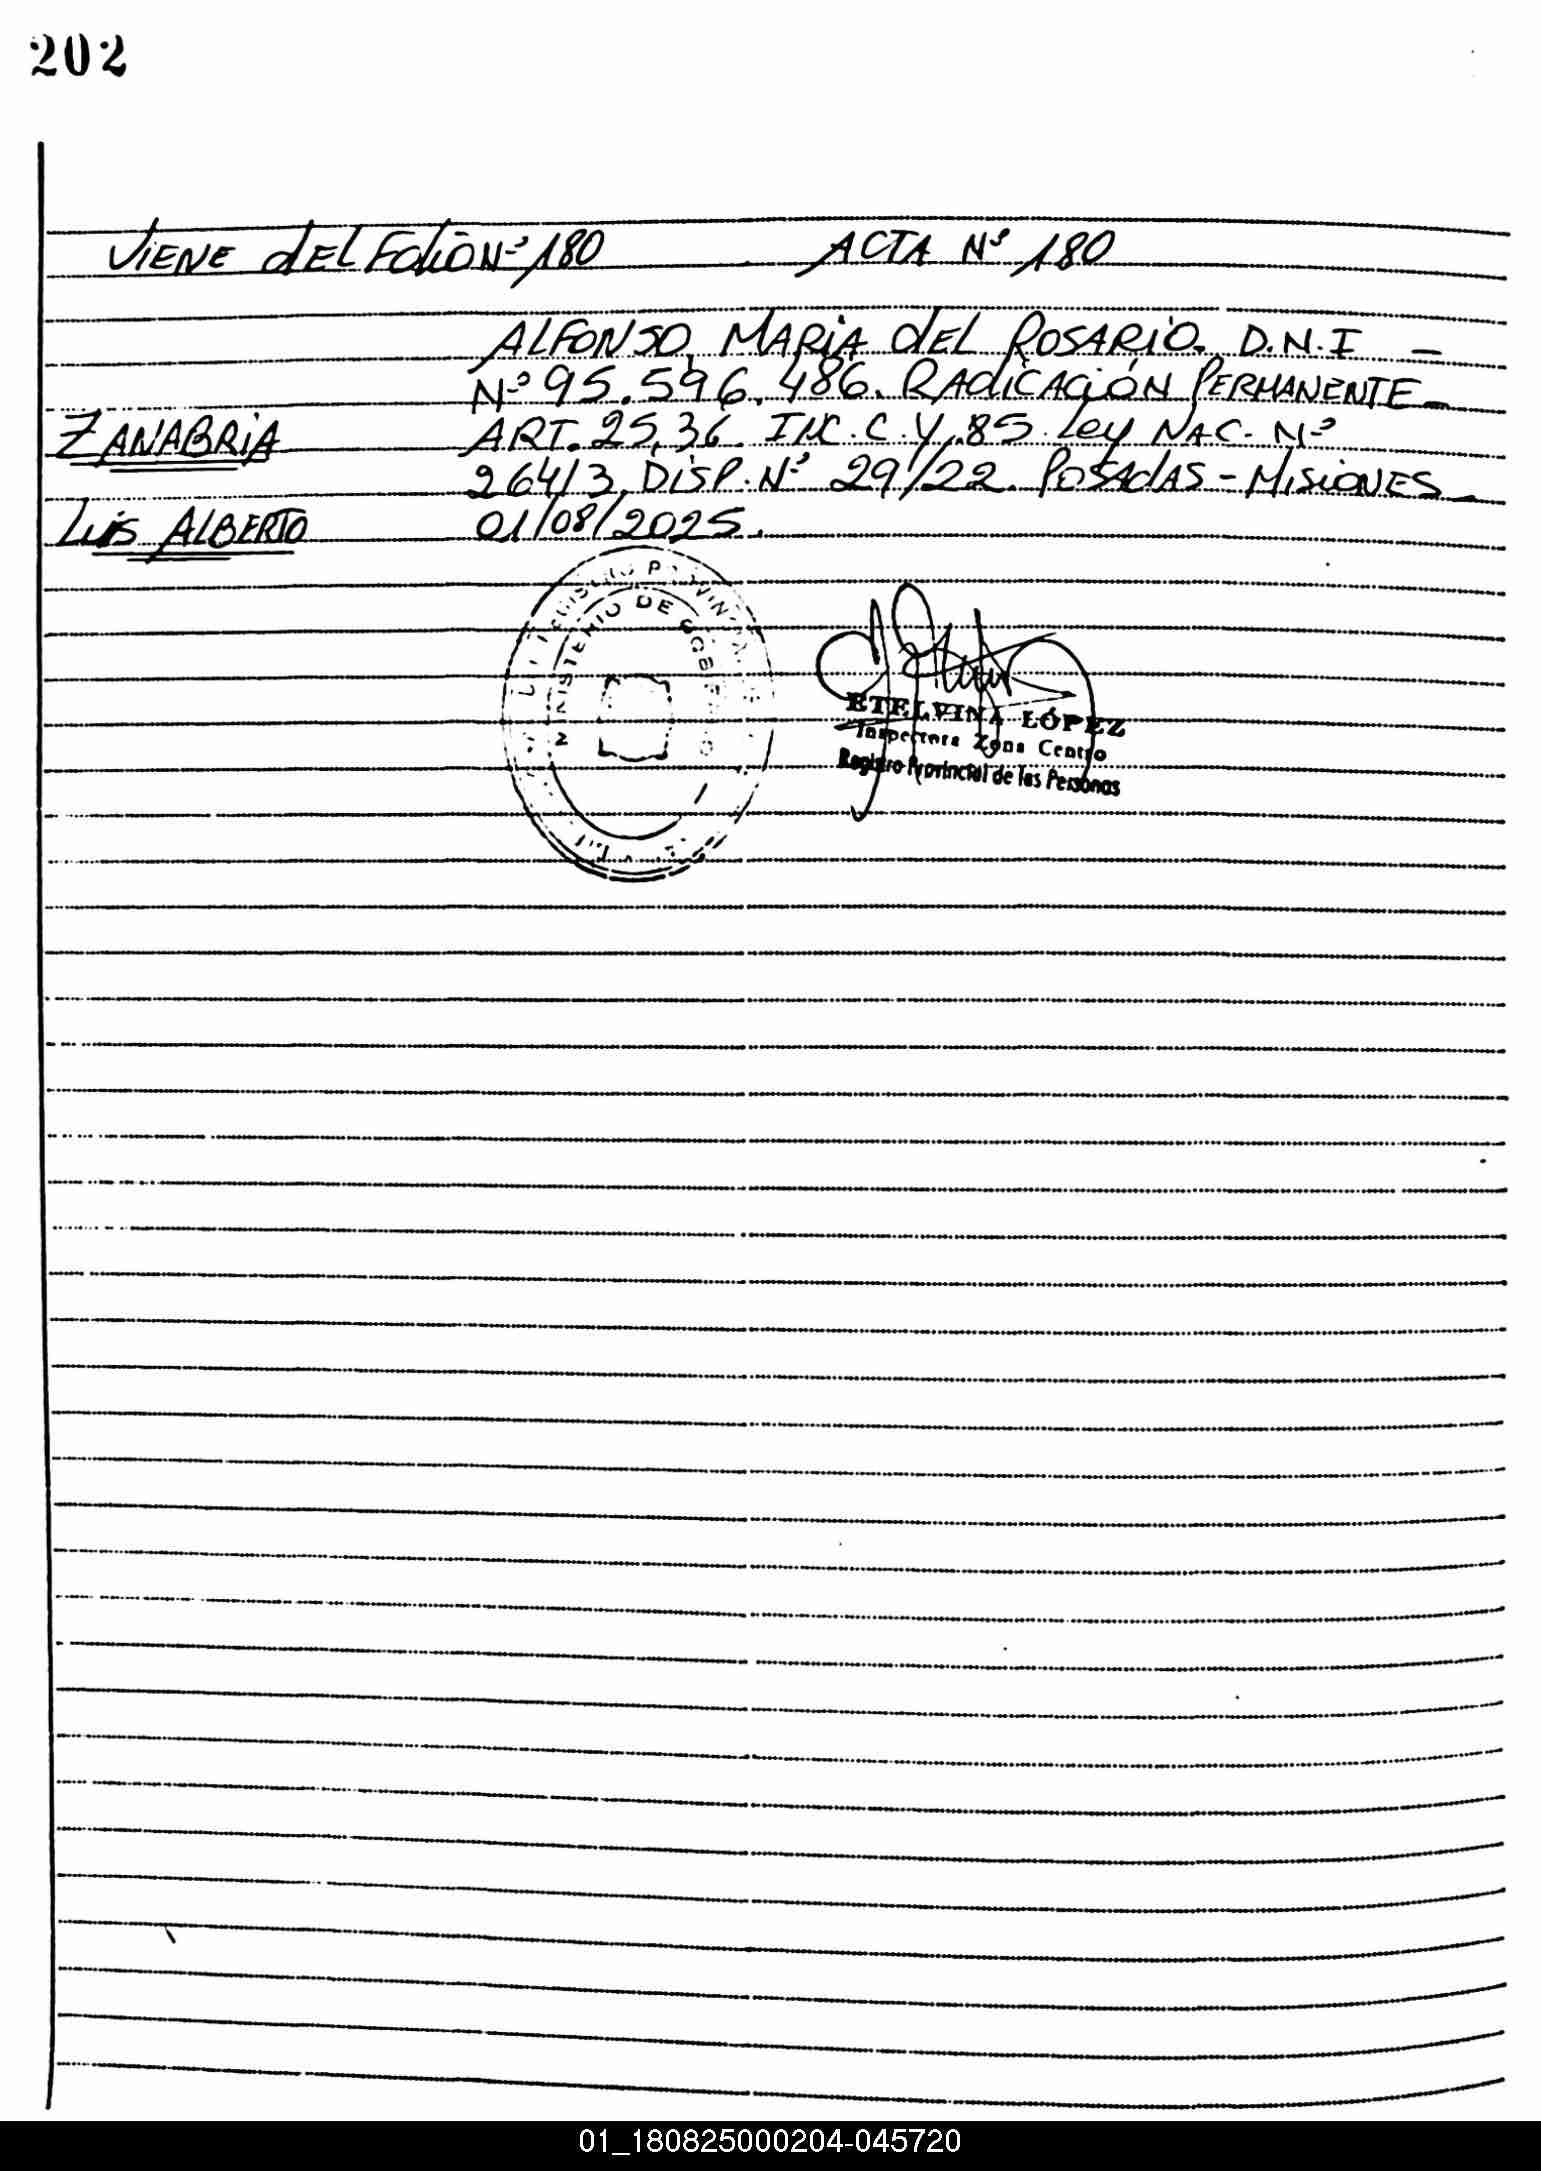 202
VIENE dEL FOLIO Nº 180 ACTA Nº 180
ALFONSO, MARIA dEL ROSARIO. D.N.I –
Nº 95.596.486. RADICACIÓN PERMANENTE –
ZANABRIA ART. 25, 36. INC. C. Y, 85. Ley NAC. Nº
26413, DISP. Nº 29/22. POSADAS – MISIONES –
LUIS ALBERTO 01/08/2025.
MINISTERIO DE GOBIERNO
ETELVINA LÓPEZ
Inspectora Zona Centro
Registro Provincial de las Personas
01_180825000204-045720